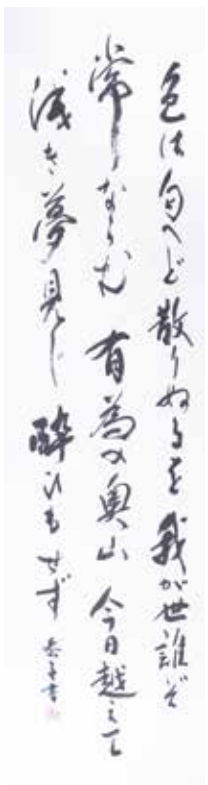 色は匂へど散りぬるを我が世誰ぞ
常ならむ有為の奥山今日越えて
浅き夢見じ酔ひもせず